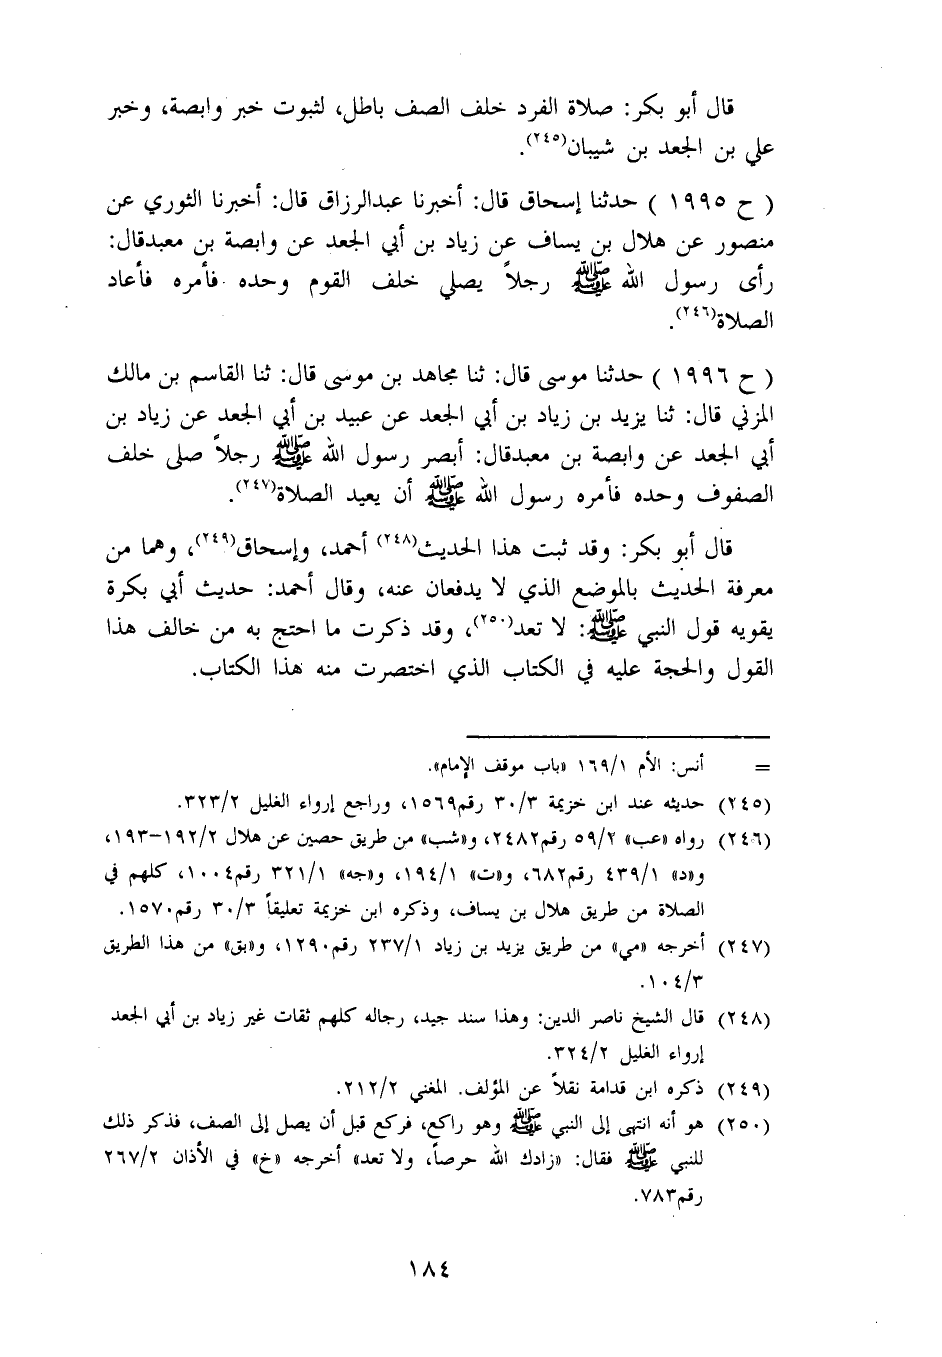 قال أبو بكر: صلاة الفرد خلف الصف باطل، لثبوت خبر وابصة، وخبر
علي بن الجعد بن شيبان(٢٤٥).
( ح ١٩٩٥ ) حدثنا إسحاق قال: أخبرنا عبدالرزاق قال: أخبرنا الثوري عن
منصور عن هلال بن يساف عن زياد بن أبي الجعد عن وابصة بن معبدقال:
رأى رسول الله ﷺ رجلاً يصلي خلف القوم وحده فأمره فأعاد
الصلاة(٢٤٦).
( ح ١٩٩٦ ) حدثنا موسى قال: ثنا مجاهد بن موسى قال: ثنا القاسم بن مالك
المزني قال: ثنا يزيد بن زياد بن أبي الجعد عن عبيد بن أبي الجعد عن زياد بن
أبي الجعد عن وابصة بن معبدقال: أبصر رسول الله ﷺ رجلاً صلى خلف
الصفوف وحده فأمره رسول الله ﷺ أن يعيد الصلاة(٢٤٧).
قال أبو بكر: وقد ثبت هذا الحديث(٢٤٨) أحمد، وإسحاق(٢٤٩)، وهما من
معرفة الحديث بالموضع الذي لا يدفعان عنه، وقال أحمد: حديث أبي بكرة
يقويه قول النبي ﷺ: لا تعد(٢٥٠)، وقد ذكرت ما احتج به من خالف هذا
القول والحجة عليه في الكتاب الذي اختصرت منه هذا الكتاب.
= أنس: الأم ١٦٩/١ «باب موقف الإمام».
(٢٤٥) حديثه عند ابن خزيمة ٣٠/٣ رقم١٥٦٩، وراجع إرواء الغليل ٣٢٣/٢.
(٢٤٦) رواه «عب» ٥٩/٢ رقم٢٤٨٢، و«شب» من طريق حصين عن هلال ١٩٢/٢-١٩٣،
و«د» ٤٣٩/١ رقم٦٨٢، و«ت» ١٩٤/١، و«جه» ٣٢١/١ رقم١٠٠٤، كلهم في
الصلاة من طريق هلال بن يساف، وذكره ابن خزيمة تعليقاً ٣٠/٣ رقم١٥٧٠.
(٢٤٧) أخرجه «مي» من طريق يزيد بن زياد ٢٣٧/١ رقم١٢٩٠، و«بق» من هذا الطريق
١٠٤/٣.
(٢٤٨) قال الشيخ ناصر الدين: وهذا سند جيد، رجاله كلهم ثقات غير زياد بن أبي الجعد
إرواء الغليل ٣٢٤/٢.
(٢٤٩) ذكره ابن قدامة نقلاً عن المؤلف. المغني ٢١٢/٢.
(٢٥٠) هو أنه انتهى إلى النبي ﷺ وهو راكع، فركع قبل أن يصل إلى الصف، فذكر ذلك
للنبي ﷺ فقال: «زادك الله حرصاً، ولا تعد» أخرجه «خ» في الأذان ٢٦٧/٢
رقم٧٨٣.
١٨٤